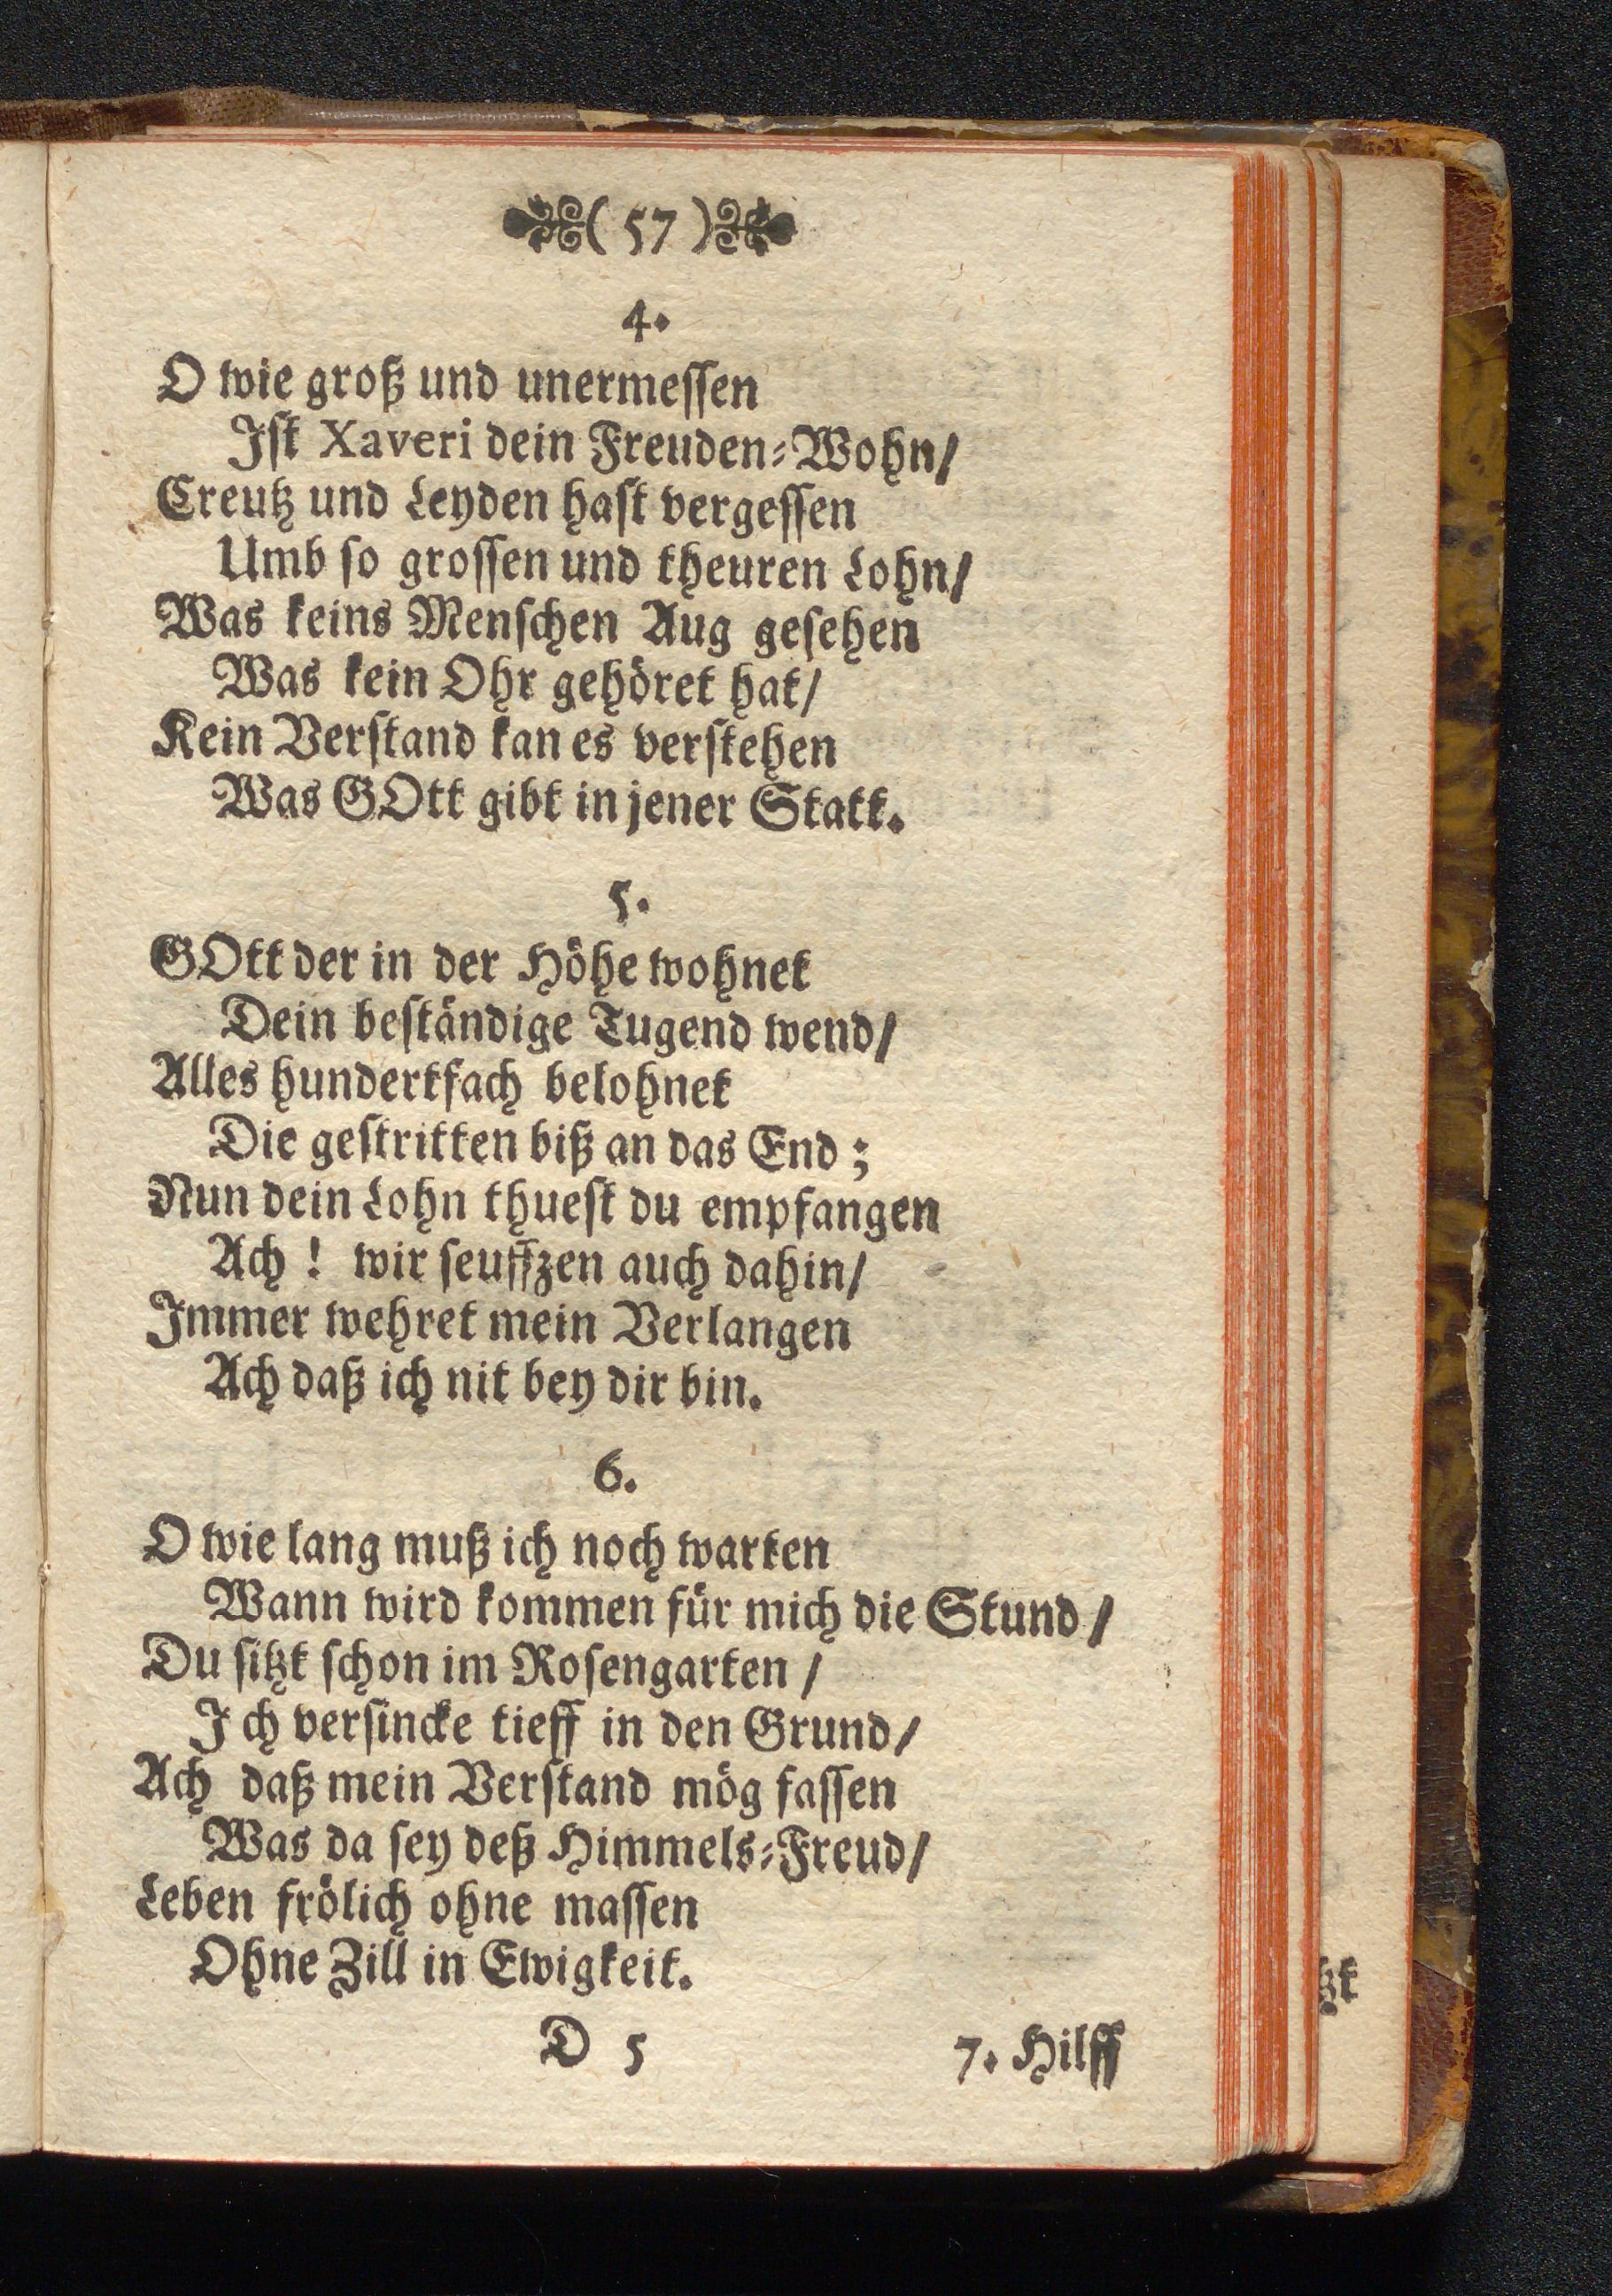 ( 57 )
4.
O wie groß und unermessen
Ist Xaveri dein Freuden-Wohn/
Creutz und Leyden hast vergessen
Umb so grossen und theuren Lohn/
Was keins Menschen Aug gesehen
Was kein Ohr gehöret hat/
Kein Verstand kan es verstehen
Was GOtt gibt in jener Statt.
5.
GOtt der in der Höhe wohnet
Dein beständige Tugend wend/
Alles hundertfach belohnet
Die gestritten biß an das End;
Nun dein Lohn thuest du empfangen
Ach! wir seuffzen auch dahin/
Immer wehret mein Verlangen
Ach daß ich nit bey dir bin.
6.
O wie lang muß ich noch warten
Wann wird kommen für mich die Stund/
Du sitzt schon im Rosengarten/
Ich versincke tieff in den Grund/
Ach daß mein Verstand mög fassen
Was da sey deß Himmels-Freud/
Leben frölich ohne massen
Ohne Zill in Ewigkeit.
D 5
7. Hilff